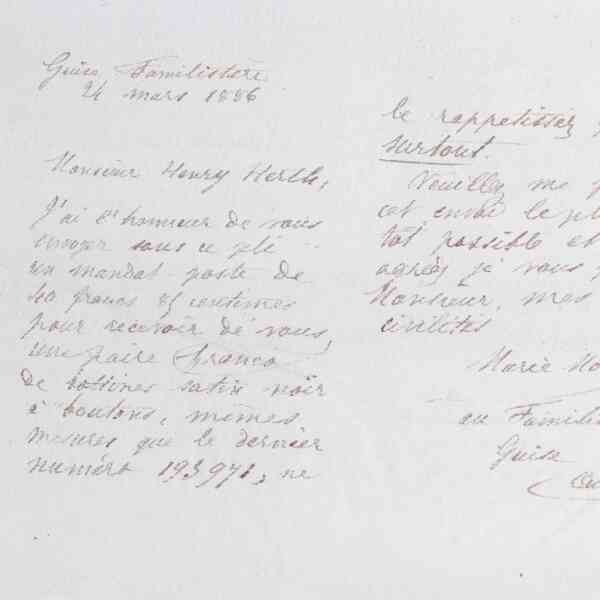 Guise Familistère
24 mars 1886
Monsieur Henry Herth,
J'ai l'honneur de vous
envoyer sous ce pli
un mandat-poste de
francs 85 centimes
pour recevoir de vous,
une paire franco
de bottines satin noir
à boutons, mêmes
mesures que le dernier
numéro 193971, ne
le rappetissez
surtout.
Veuillez me
cet envoi le pl
tôt possible et
agréez je vous
Monsieur, mes
civilités
Marie Mo
au Famili
Guise